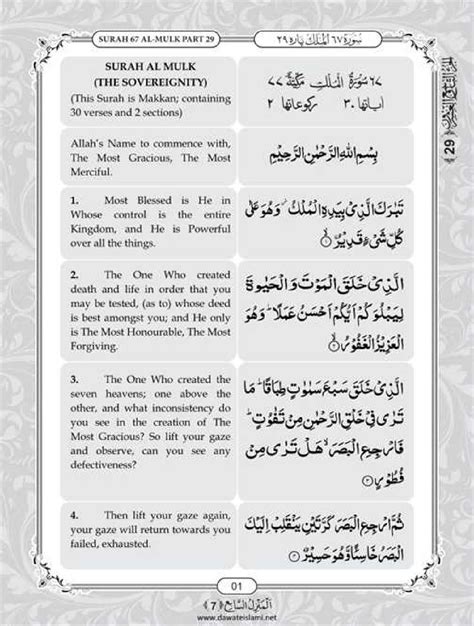 SURAH 67 AL-MULK PART 29
سورة ٦٧ الملك پاره ٢٩
SURAH AL MULK
(THE SOVEREIGNTY)
(This Surah is Makkan; containing
30 verses and 2 sections)
٦٧ سُوْرَةُ الْمُلْكِ مَكِّيَّةٌ ٧٧
اٰیاتہا ٣٠ رکوعاتہا ٢
Allah's Name to commence with,
The Most Gracious, The Most
Merciful.
بِسْمِ اللهِ الرَّحْمٰنِ الرَّحِيْمِ
1. Most Blessed is He in
Whose control is the entire
Kingdom, and He is Powerful
over all the things.
تَبٰرَكَ الَّذِيْ بِيَدِهِ الْمُلْكُ ۫ وَهُوَ عَلٰى
كُلِّ شَيْءٍ قَدِيْرُ ۙ ١
2. The One Who created
death and life in order that you
may be tested, (as to) whose deed
is best amongst you; and He only
is The Most Honourable, The Most
Forgiving.
الَّذِيْ خَلَقَ الْمَوْتَ وَ الْحَيٰوةَ
لِيَبْلُوَكُمْ اَيُّكُمْ اَحْسَنُ عَمَلًا ؕ وَ هُوَ
الْعَزِيْزُ الْغَفُوْرُ ۙ ٢
3. The One Who created the
seven heavens; one above the
other, and what inconsistency do
you see in the creation of The
Most Gracious? So lift your gaze
and observe, can you see any
defectiveness?
الَّذِيْ خَلَقَ سَبْعَ سَمٰوٰتٍ طِبَاقًا ؕ مَا
تَرٰى فِيْ خَلْقِ الرَّحْمٰنِ مِنْ تَفٰوُتٍ ؕ
فَارْجِعِ الْبَصَرَ ۙ هَلْ تَرٰى مِنْ
فُطُوْرٍ ٣
4. Then lift your gaze again,
your gaze will return towards you
failed, exhausted.
ثُمَّ ارْجِعِ الْبَصَرَ كَرَّتَيْنِ يَنْقَلِبْ اِلَيْكَ
الْبَصَرُ خَاسِئًا وَّ هُوَ حَسِيْرٌ ٤
29
01
اَلْمَنْزِلُ السَّابِع ﴿7﴾
www.dawateislami.net